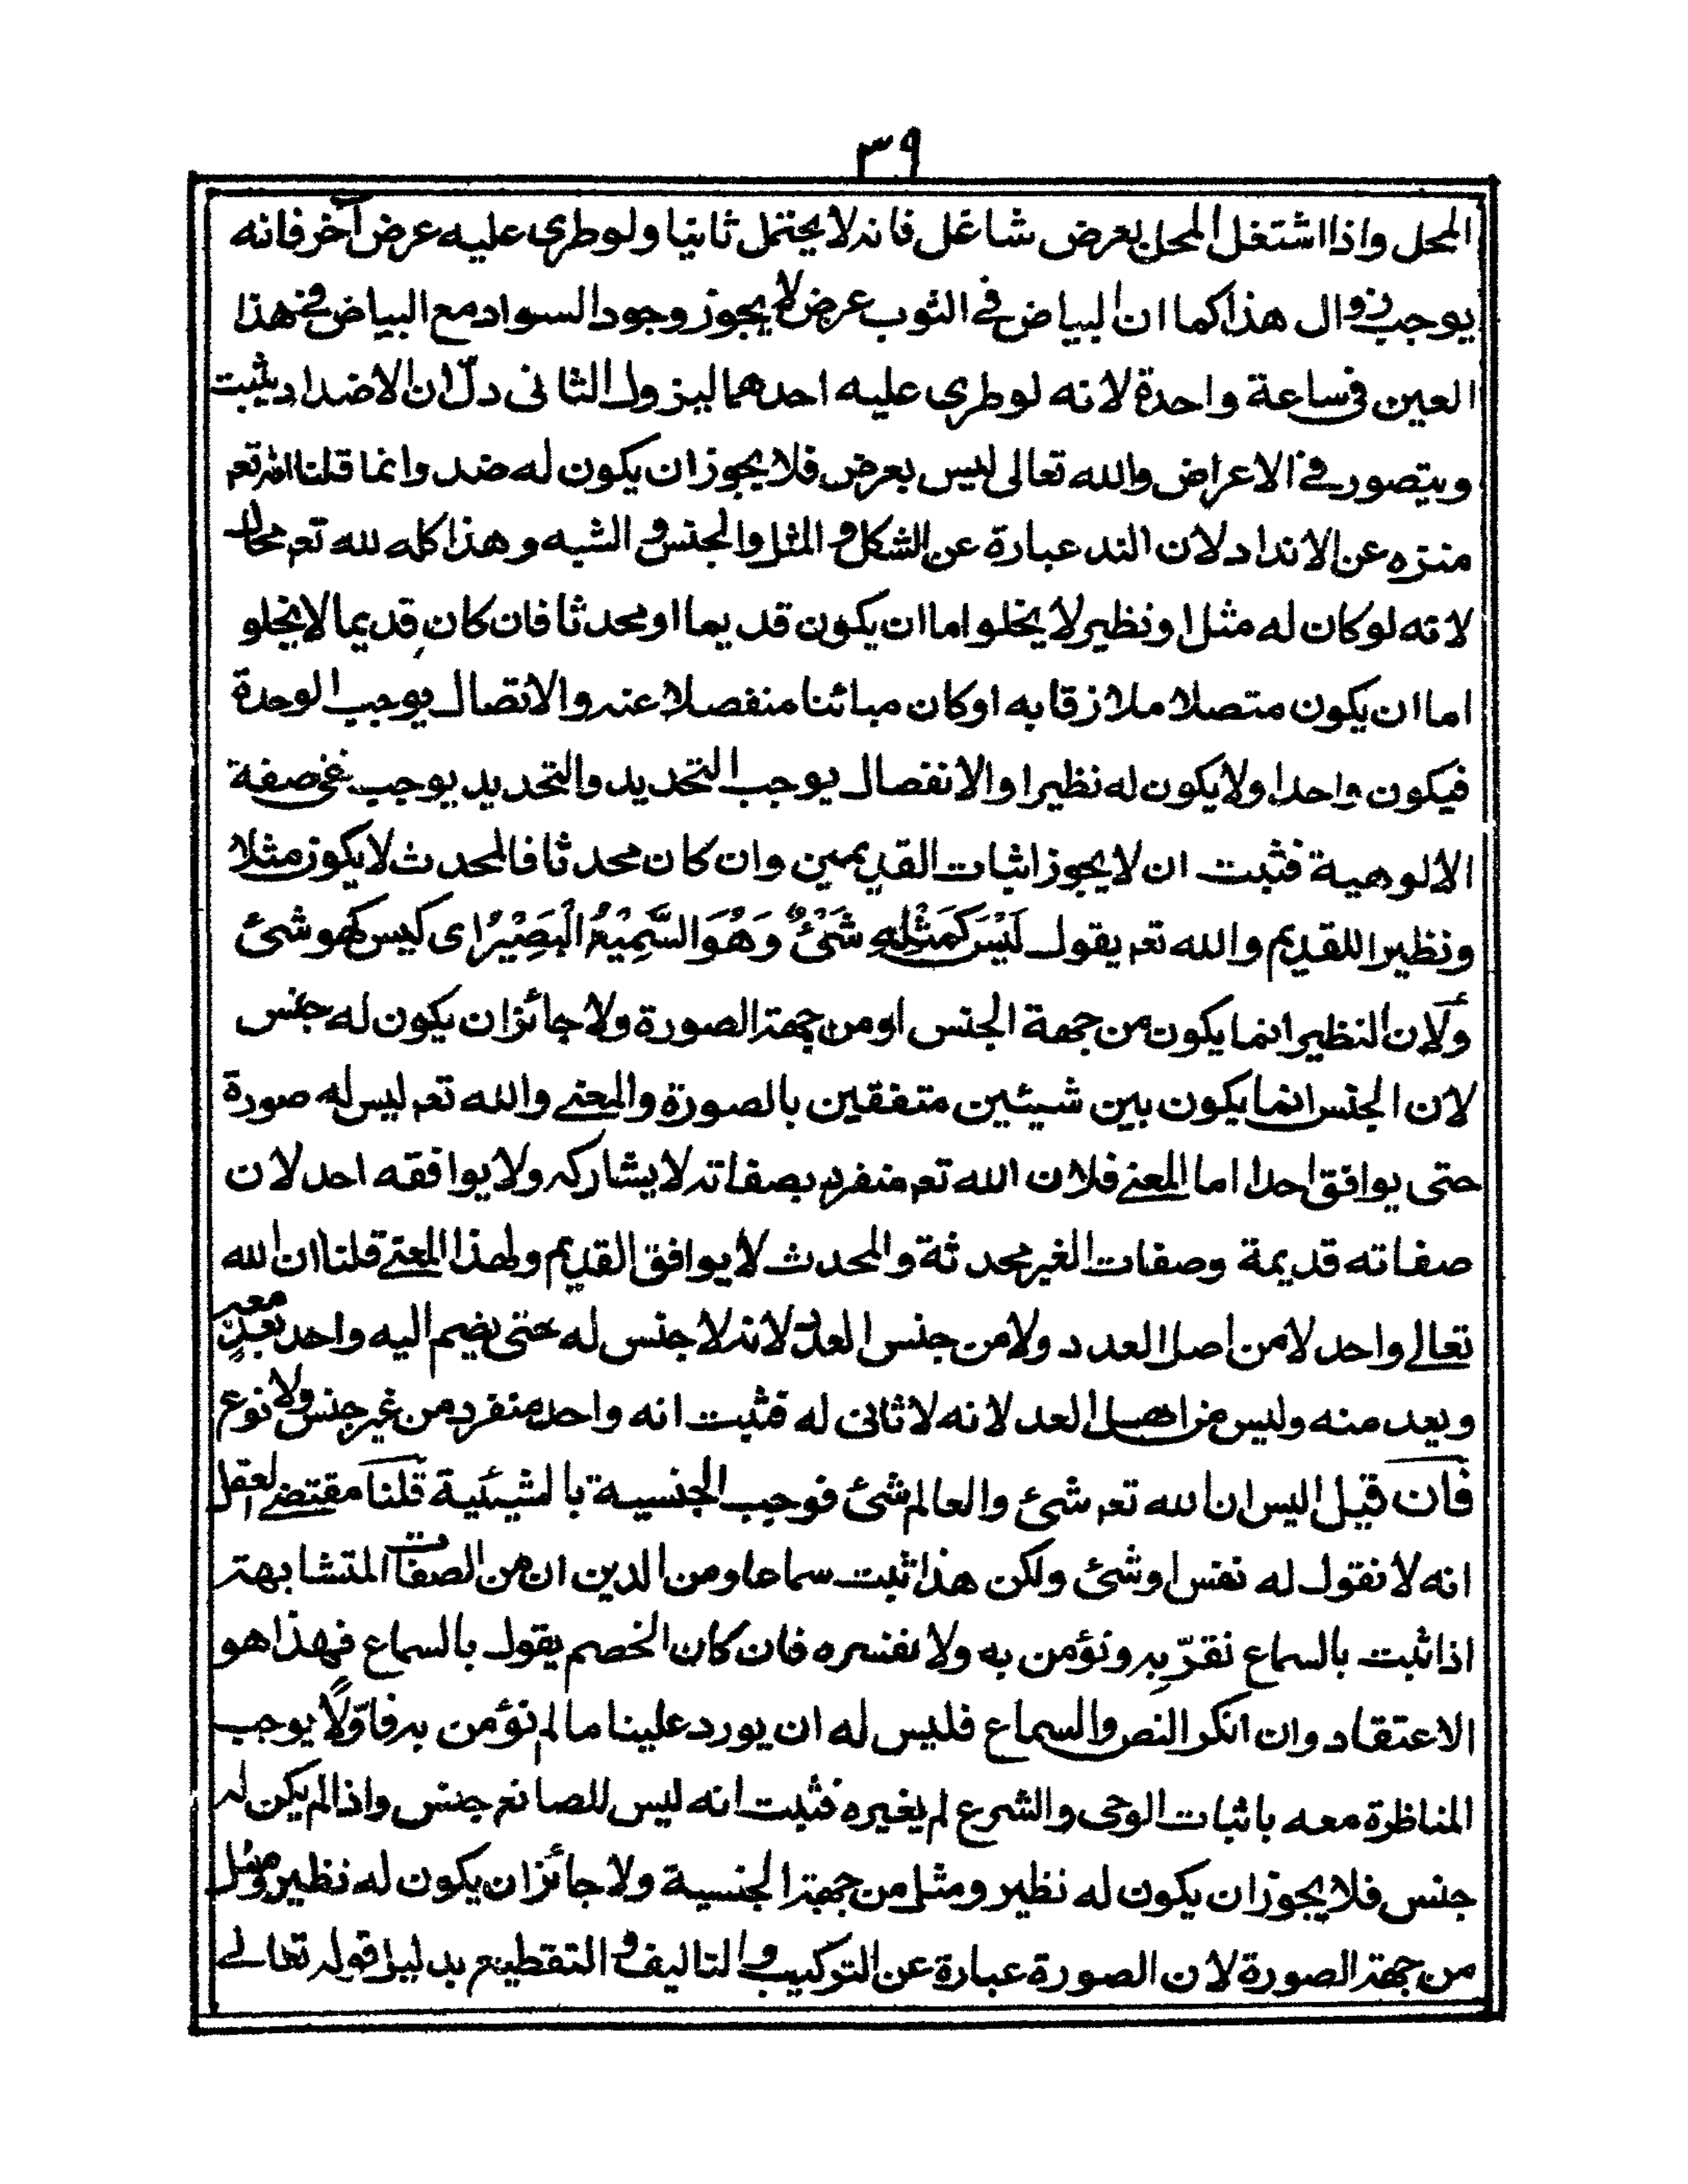 ٣٩
المحل واذا اشتغل المحل بعرض شاغل فانه لا يحتمل ثانيا ولو طرى عليه عرض آخر فانه
يوجب زوال هذا كما ان البياض فى الثوب عرض لا يجوز وجود السواد مع البياض فى هذا
العين فى ساعة واحدة لانه لو طرى عليه احدهما ليزول الثانى دلّ ان الاضداد يثبت
ويتصور فى الاعراض والله تعالى ليس بعرض فلا يجوز ان يكون له ضد وانما قلنا الله تعم
منزه عن الانداد لان الند عبارة عن الشكل و المثل والجنس و الشبه وهذا كله لله تعم محال
لانه لو كان له مثل او نظير لا يخلو اما ان يكون قديما او محدثا فان كان قديما لا يخلو
اما ان يكون متصلا ملازقا به او كان مبائنا منفصلا عنه والاتصال يوجب الوحدة
فيكون واحدا ولا يكون له نظيرا والانفصال يوجب التحديد والتحديد يوجب نفى صفة
الالوهية فثبت ان لا يجوز اثبات القديمين وان كان محدثا فالمحدث لا يكون مثلا
ونظيرا للقديم والله تعم يقول لَيْسَ كَمِثْلِهٖ شَیْئٌ وَهُوَ السَّمِيْعُ الْبَصِيْرُ اى ليس كهو شئ
ولان النظير انما يكون من جهة الجنس او من جهة الصورة ولا جائز ان يكون له جنس
لان الجنس انما يكون بين شيئين متفقين بالصورة والمعنى والله تعم ليس له صورة
حتى يوافق احدا اما المعنى فلان الله تعم منفرد بصفاته لا يشاركه ولا يوافقه احد لان
صفاته قديمة وصفات الغير محدثة والمحدث لا يوافق القديم ولهذا المعنى قلنا ان الله
تعالى واحد لا من اصل العدد ولا من جنس العدد لانه لا جنس له حتى يضم اليه واحد بعد معه
ويعد منه وليس من اصل العد لانه لا ثانى له فثبت انه واحد منفرد من غير جنس ولا نوع
فان قيل اليس ان الله تعم شئ والعالم شئ فوجب الجنسية بالشيئية قلنا مقتضى العقل
انه لا نقول له نفس او شئ ولكن هذا ثبت سماعا ومن الدين ان من الصفات المتشابهة
اذا ثبت بالسماع نقرّ به ونؤمن به ولا نفسره فان كان الخصم يقول بالسماع فهذا هو
الاعتقاد وان انكر النص والسماع فليس له ان يورد علينا ما لم نؤمن به فاوّلًا يوجب
المناظرة معه باثبات الوحى والشرع لم يغيره فثبت انه ليس للصانع جنس واذا لم يكن له
جنس فلا يجوز ان يكون له نظير ومثل من جهة الجنسية ولا جائز ان يكون له نظير ومثل
من جهة الصورة لان الصورة عبارة عن التركيب و التاليف و التقطيع بدليل قوله تعالى